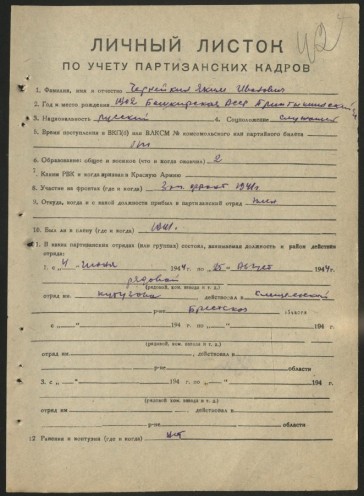 42
ЛИЧНЫЙ ЛИСТОК
ПО УЧЕТУ ПАРТИЗАНСКИХ КАДРОВ
1. Фамилия, имя и отчество Яким Иванович
2. Год и место рождения 1902 Башкирская АССР
3. Национальность русский 4. Соцположение служащий
5. Время поступления в ВКП(б) или ВЛКСМ № комсомольского или партийного билета
б/п
6. Образование: общее и военное (что и когда окончил) 2
7. Каким РВК и когда призван в Красную Армию
8. Участие на фронтах (где и когда) Зап. фронт 1941г
9. Откуда, когда и с какой должности прибыл в партизанский отряд плен
10. Был ли в плену (где и когда) 1941.
11. В каких партизанских отрядах (или группах) состоял, занимаемая должность и район действия
отряда:
1. с „4“ июня 1944 г. по „25“ Август 1944 г.
рядовой
(рядовой, ком. взвода и т. д.)
отряд им. Кутузова действовал в
р-не Брестской области
с „ “ 194 г. по „ “ 194 г.
(рядовой, ком. взвода и т. д.)
отряд им. , действовал в
р-не области
3. с „ “ 194 г. по „ “ 194 г.
(рядовой ком. взвода и т. д.)
отряд им. действовал в
р-не области
12 Ранения и контузии (где и когда) нет